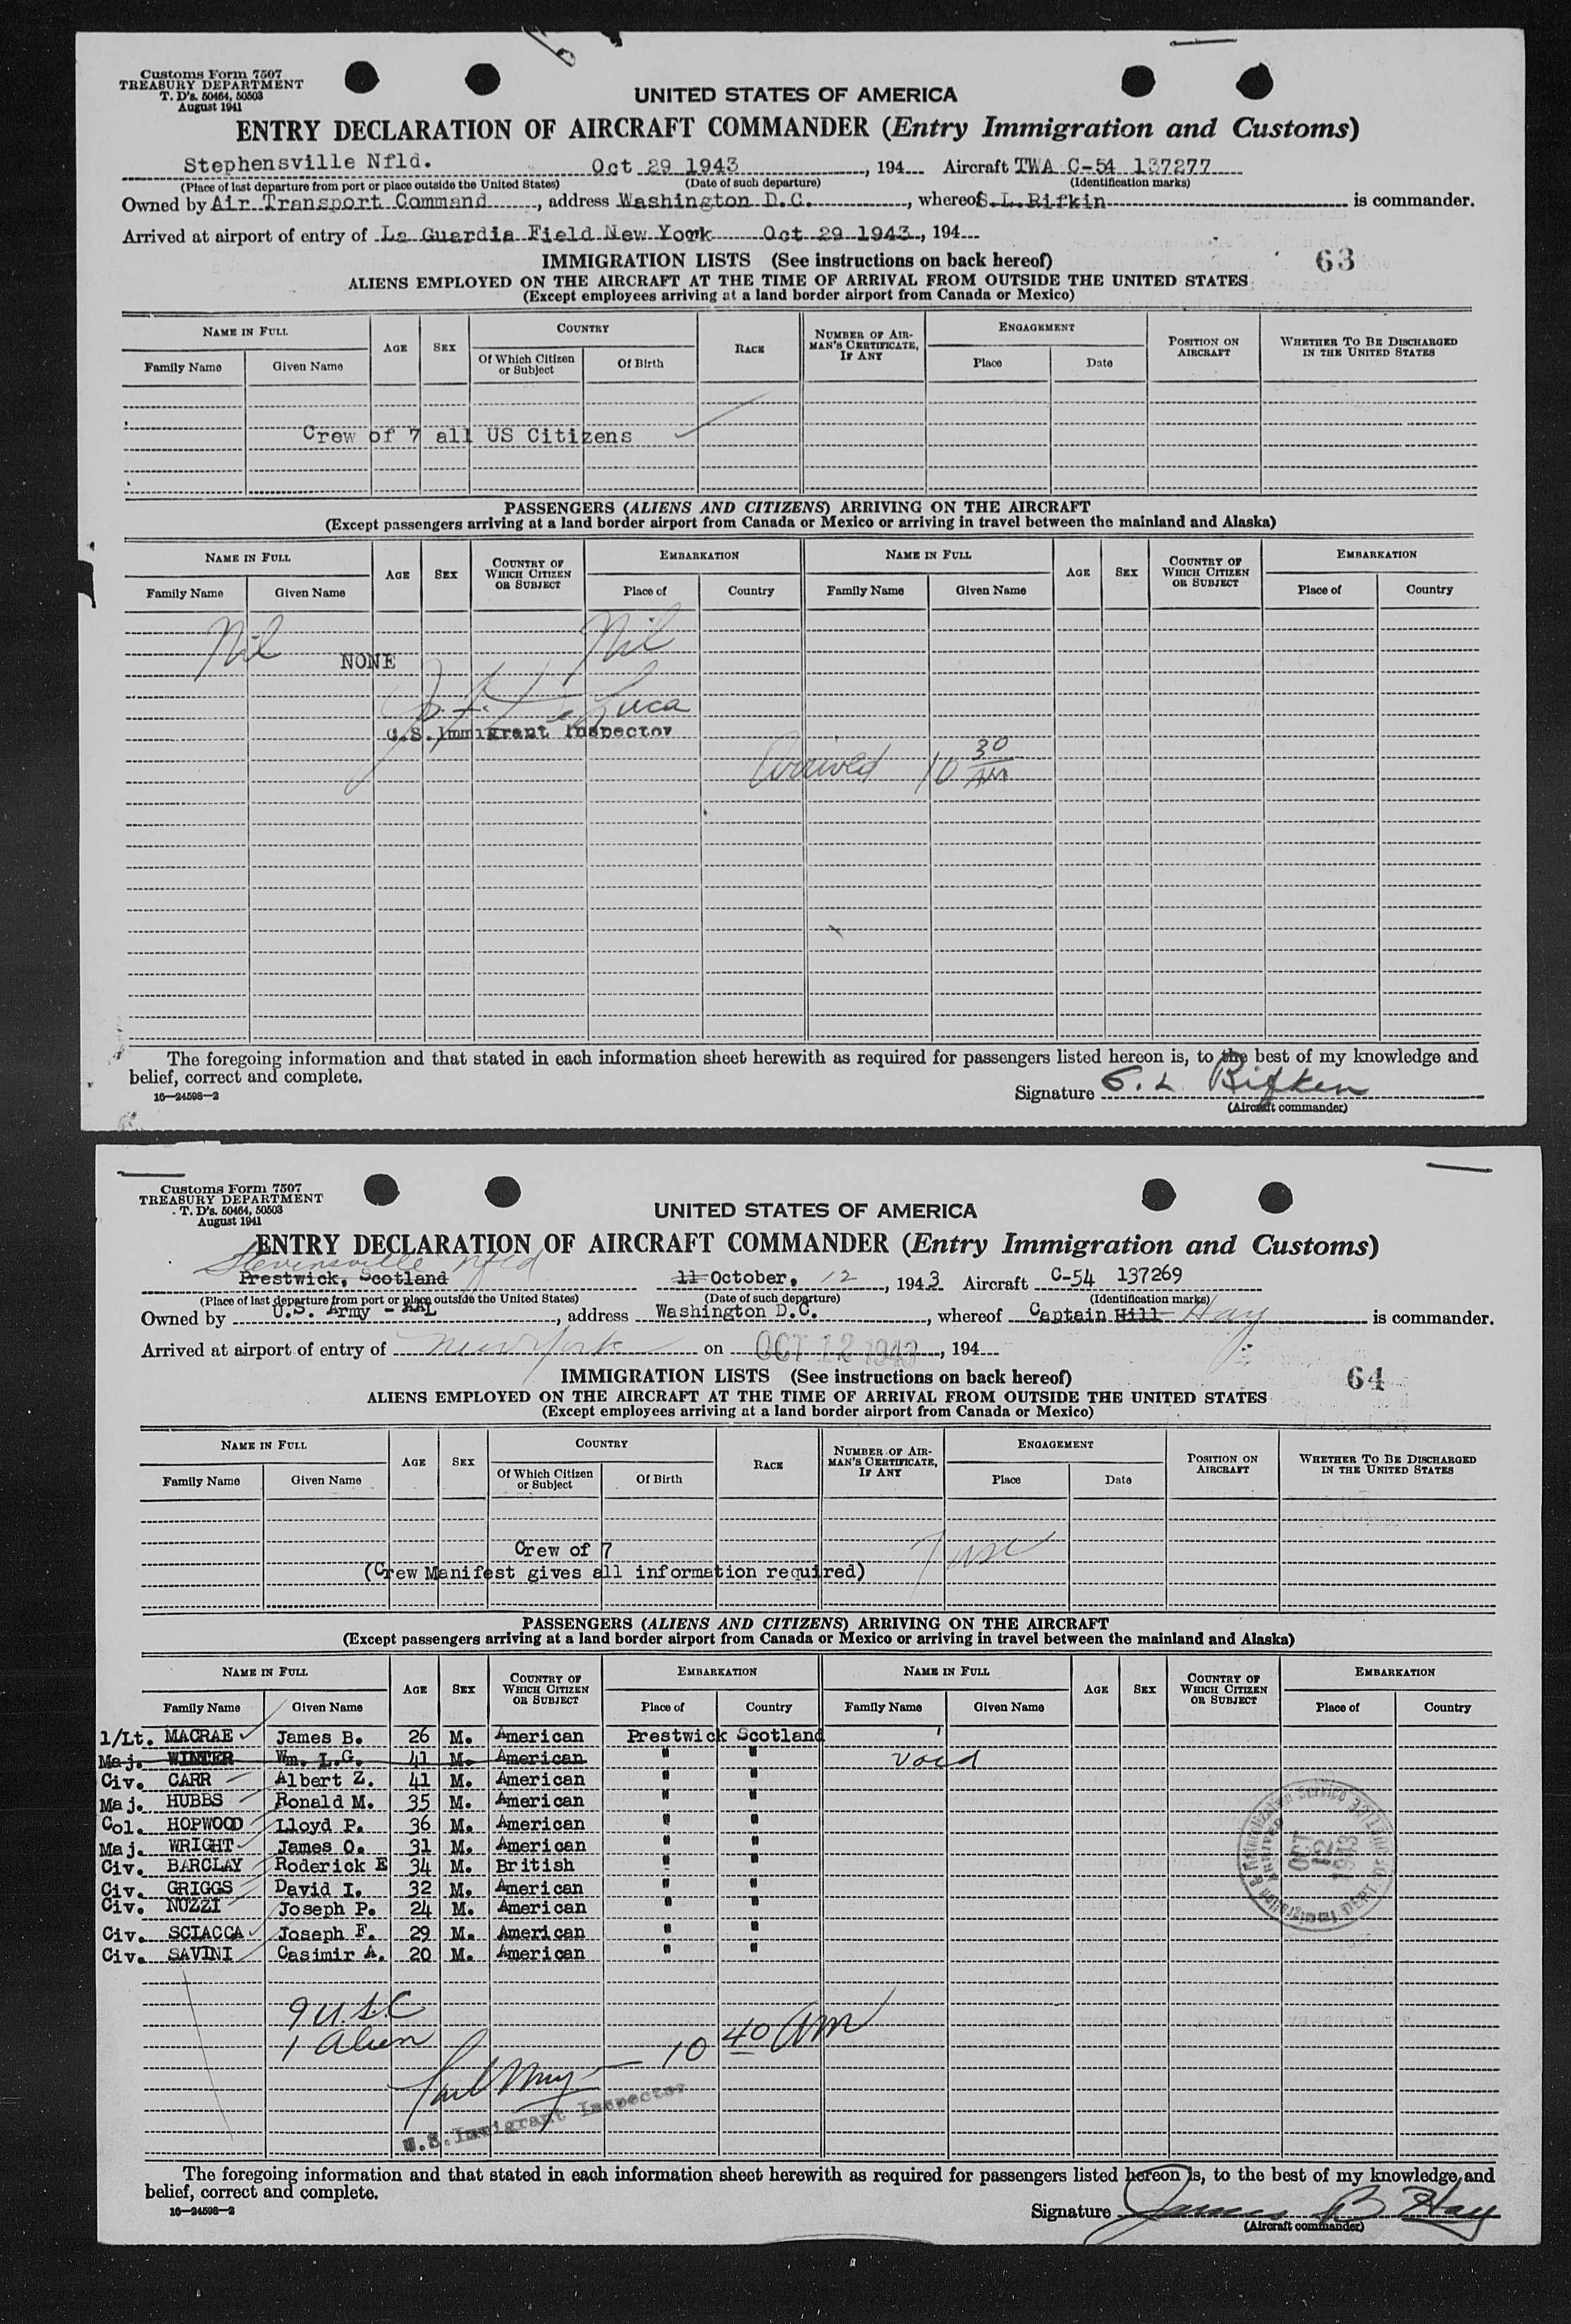 Customs Form 7507
TREASURY DEPARTMENT
T. D's. 50464, 50503
August 1941
UNITED STATES OF AMERICA
ENTRY DECLARATION OF AIRCRAFT COMMANDER (Entry Immigration and Customs)
Stephensville Nfld. Oct 29 1943, 194 Aircraft TWA C-54 137277
(Place of last departure from port or place outside the United States) (Date of such departure) (Identification marks)
Owned by Air Transport Command, address Washington D.C., whereof S.L.Rifkin is commander.
Arrived at airport of entry of La Guardia Field New York Oct 29 1943, 194
IMMIGRATION LISTS (See instructions on back hereof) 63
ALIENS EMPLOYED ON THE AIRCRAFT AT THE TIME OF ARRIVAL FROM OUTSIDE THE UNITED STATES
(Except employees arriving at a land border airport from Canada or Mexico)
NAME IN FULL AGE SEX COUNTRY RACE NUMBER OF AIRMAN'S CERTIFICATE, IF ANY ENGAGEMENT POSITION ON AIRCRAFT WHETHER TO BE DISCHARGED IN THE UNITED STATES
Family Name Given Name Of Which Citizen or Subject Of Birth Place Date
Crew of 7 all US Citizens
PASSENGERS (ALIENS AND CITIZENS) ARRIVING ON THE AIRCRAFT
(Except passengers arriving at a land border airport from Canada or Mexico or arriving in travel between the mainland and Alaska)
NAME IN FULL AGE SEX COUNTRY OF WHICH CITIZEN OR SUBJECT EMBARKATION NAME IN FULL AGE SEX COUNTRY OF WHICH CITIZEN OR SUBJECT EMBARKATION
Family Name Given Name Place of Country Family Name Given Name Place of Country
Nil NONE Nil
U.S. Immigrant Inspector
Arrived 10 30 AM
The foregoing information and that stated in each information sheet herewith as required for passengers listed hereon is, to the best of my knowledge and
belief, correct and complete.
16—24598—2
Signature S. L. Rifken
(Aircraft commander)
Customs Form 7507
TREASURY DEPARTMENT
T. D's. 50464, 50503
August 1941
UNITED STATES OF AMERICA
ENTRY DECLARATION OF AIRCRAFT COMMANDER (Entry Immigration and Customs)
Stevensville Nfld
Prestwick, Scotland 11 October, 12, 1943 Aircraft C-54 137269
(Place of last departure from port or place outside the United States) (Date of such departure) (Identification marks)
Owned by U.S. Army - AAL, address Washington D.C., whereof Captain Hill Hay is commander.
Arrived at airport of entry of New York on OCT 12 1943, 194
IMMIGRATION LISTS (See instructions on back hereof) 64
ALIENS EMPLOYED ON THE AIRCRAFT AT THE TIME OF ARRIVAL FROM OUTSIDE THE UNITED STATES
(Except employees arriving at a land border airport from Canada or Mexico)
NAME IN FULL AGE SEX COUNTRY RACE NUMBER OF AIRMAN'S CERTIFICATE, IF ANY ENGAGEMENT POSITION ON AIRCRAFT WHETHER TO BE DISCHARGED IN THE UNITED STATES
Family Name Given Name Of Which Citizen or Subject Of Birth Place Date
Crew of 7
(Crew Manifest gives all information required)
PASSENGERS (ALIENS AND CITIZENS) ARRIVING ON THE AIRCRAFT
(Except passengers arriving at a land border airport from Canada or Mexico or arriving in travel between the mainland and Alaska)
NAME IN FULL AGE SEX COUNTRY OF WHICH CITIZEN OR SUBJECT EMBARKATION NAME IN FULL AGE SEX COUNTRY OF WHICH CITIZEN OR SUBJECT EMBARKATION
Family Name Given Name Place of Country Family Name Given Name Place of Country
1/Lt. MACRAE James B. 26 M. American Prestwick Scotland
Maj. WINTER Wm. L.G. 41 M. American " " Void
Civ. CARR Albert Z. 41 M. American " "
Maj. HUBBS Ronald M. 35 M. American " "
Col. HOPWOOD Lloyd P. 36 M. American " "
Maj. WRIGHT James O. 31 M. American " "
Civ. BARCLAY Roderick E 34 M. British " "
Civ. GRIGGS David I. 32 M. American " "
Civ. NUZZI Joseph P. 24 M. American " "
Civ. SCIACCA Joseph F. 29 M. American " "
Civ. SAVINI Casimir A. 20 M. American " "
Immigration & Naturalization Service
ARRIVED
OCT 12 1943
9 U.S.C
1 Alien
10 40 AM
U.S. Immigrant Inspector
The foregoing information and that stated in each information sheet herewith as required for passengers listed hereon is, to the best of my knowledge and
belief, correct and complete.
16—24598—2
Signature James B Hay
(Aircraft commander)